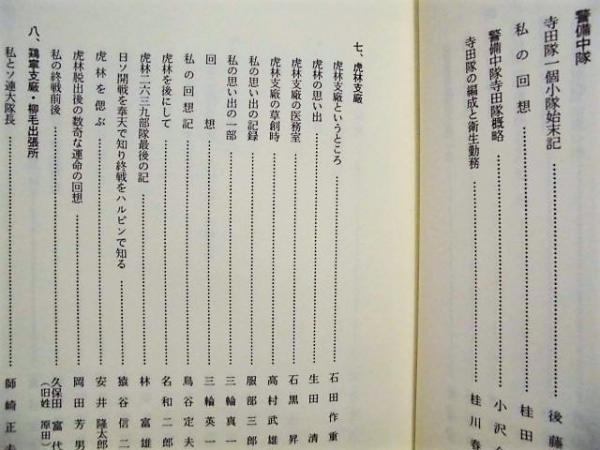 警備中隊
寺田隊一個小隊始末記……後藤
私の回想……桂田
警備中隊寺田隊概略……小沢
寺田隊の編成と衛生勤務……桂川春
七、虎林支廠
虎林支廠というところ……石田作重
虎林の思い出……生田清
虎林支廠の医務室……石黒昇
虎林支廠の草創時……高村武雄
私の思い出の記録……服部三郎
私の思い出の一部……三輪真一
回想……三輪英一
私の回想記……鳥谷定夫
虎林を後にして……名和二郎
虎林二六三九部隊最後の記……林富雄
日ソ開戦を奉天で知り終戦をハルビンで知る……猿谷信二
虎林を偲ぶ……安井隆太郎
虎林脱出後の数奇な運命の回想……岡田芳男
私の終戦前後……久保田富代（旧姓 原田）
八、鶏寧支廠・柳毛出張所
私とソ連大隊長……師崎正夫